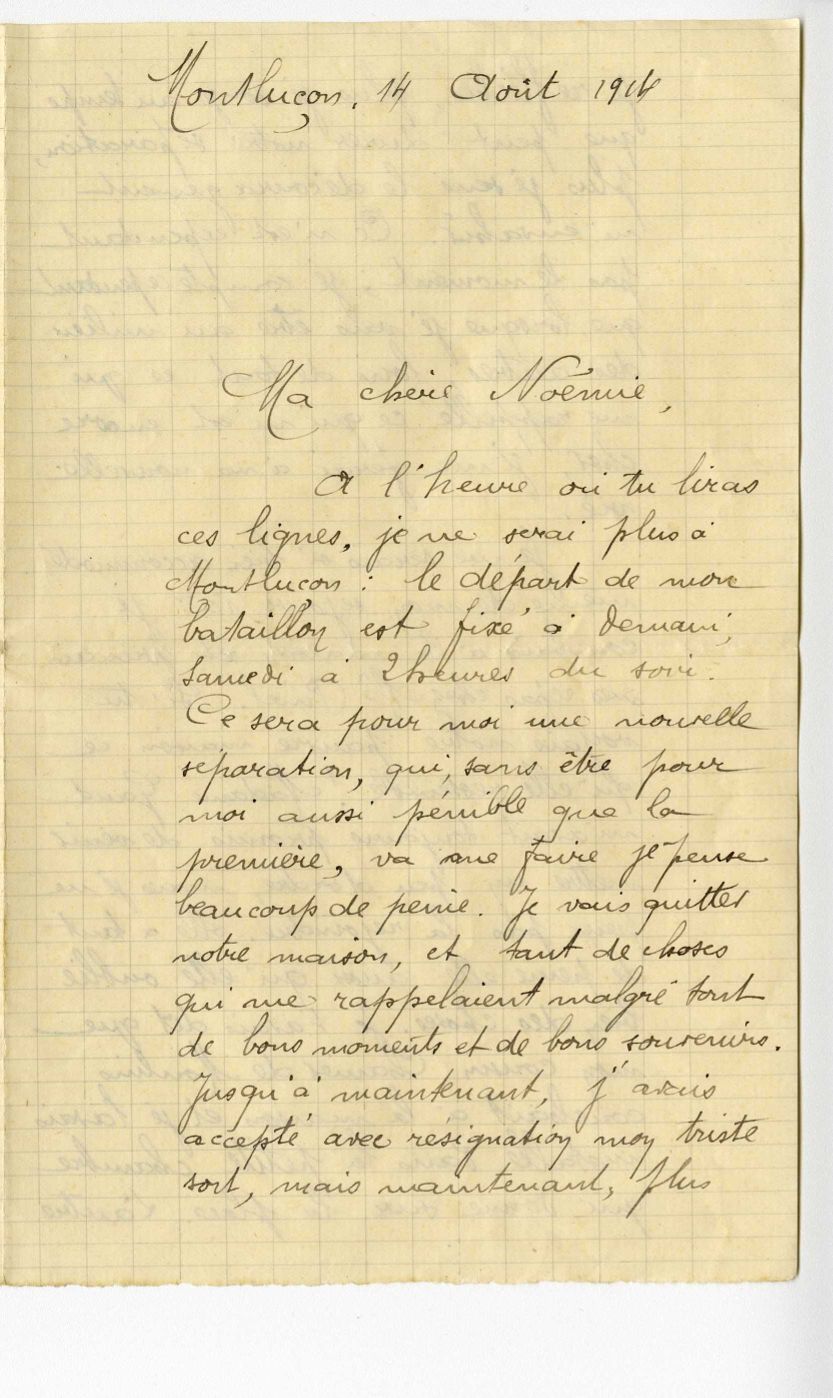 Montluçon, 14 Août 1914
Ma chérie Noémie,
A l'heure où tu liras
ces lignes, je ne serai plus à
Montluçon : le départ de mon
bataillon est fixé à demain,
samedi à 2 heures du soir.
Ce sera pour moi une nouvelle
séparation, qui, sans être pour
moi aussi pénible que la
première, va me faire je pense
beaucoup de peine. Je vais quitter
notre maison, et tant de choses
qui me rappelaient malgré tout
de bons moments et de bons souvenirs.
Jusqu'à maintenant, j'avais
accepté avec résignation mon triste
sort, mais maintenant, plus